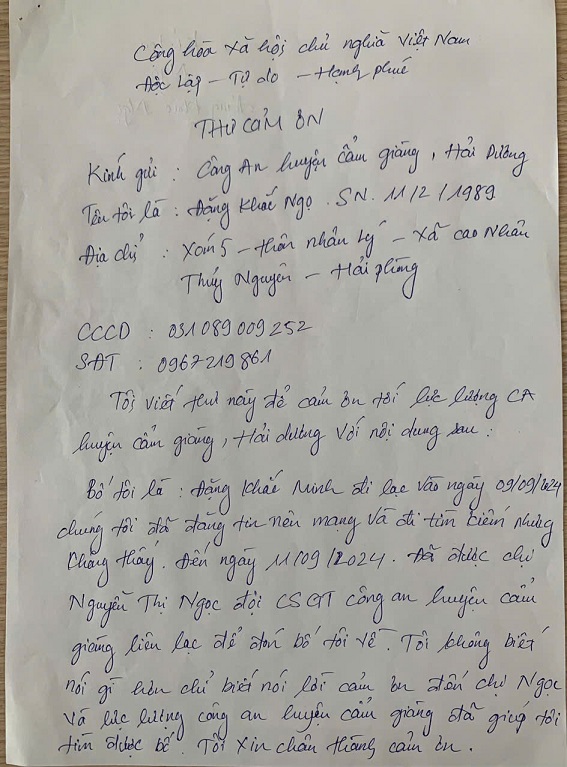 Cộng hòa xã hội chủ nghĩa Việt Nam
Độc Lập - Tự do - Hạnh phúc
THƯ CẢM ƠN
Kính gửi : Công An huyện Cẩm giàng, Hải Dương
Tên tôi là : Đặng Khắc Ngọ. SN. 11/2/1989
Địa chỉ : Xóm 5 - thôn nhân Lý - Xã cao Nhân
Thủy Nguyên - Hải phòng
CCCD : 031089009252
SĐT : 0967219861
Tôi viết thư này để cảm ơn tới lực lượng CA
huyện cẩm giàng, Hải dương với nội dung sau :
Bố tôi là : Đặng Khắc Minh đi lạc vào ngày 09/09/2024
chúng tôi đã đăng tin nên mạng và đi tìm kiếm nhưng
chẳng thấy. Đến ngày 11/09/2024. Đã được chị
Nguyễn Thị Ngọc đội CSGT công an huyện cẩm
giàng liên lạc để đón bố tôi về. Tôi không biết
nói gì hơn chỉ biết nói lời cảm ơn đến chị Ngọc
và lực lượng công an huyện cẩm giàng đã giúp tôi
tìm được bố. Tôi xin chân thành cảm ơn.